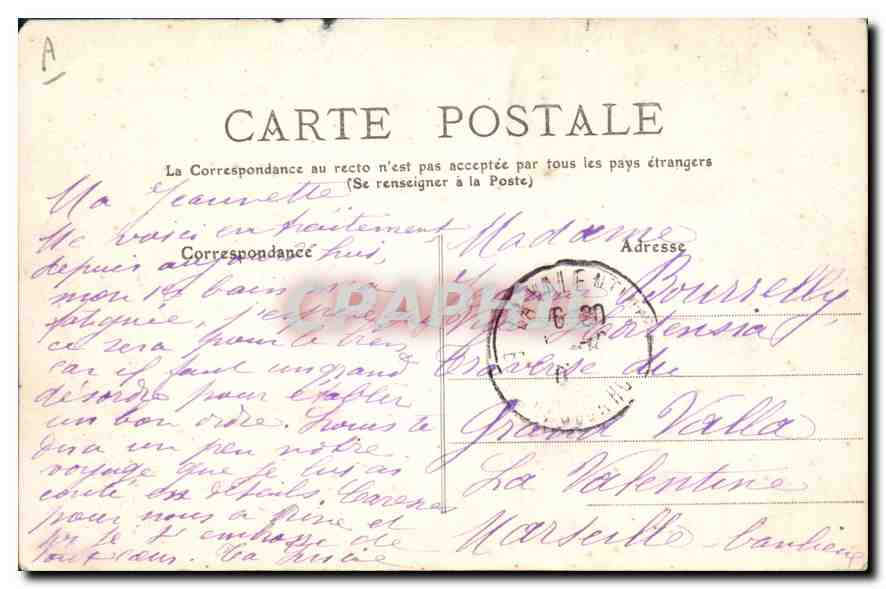 A
CARTE POSTALE
La Correspondance au recto n'est pas acceptée par tous les pays étrangers
(Se renseigner à la Poste)
Correspondance
Adresse
Ma Jeannette
Me voici en traitement
depuis aujourd'hui,
mon 1er bain m'a
fatiguée, j'espère
ce sera pour le bien
car il faut un grand
désordre pour établir
un bon ordre. Louis te
dira un peu notre
voyage que je lui ai
conté en détails. Caresses
pour nous à et
je t'embrasse de
tout cœur. Ta
Madame
Bourrelly
Hortensia
Traverse du
Grand Valla
La Valentine
Marseille banlieue
LA VALENTINE
6 30
CPARHAMA